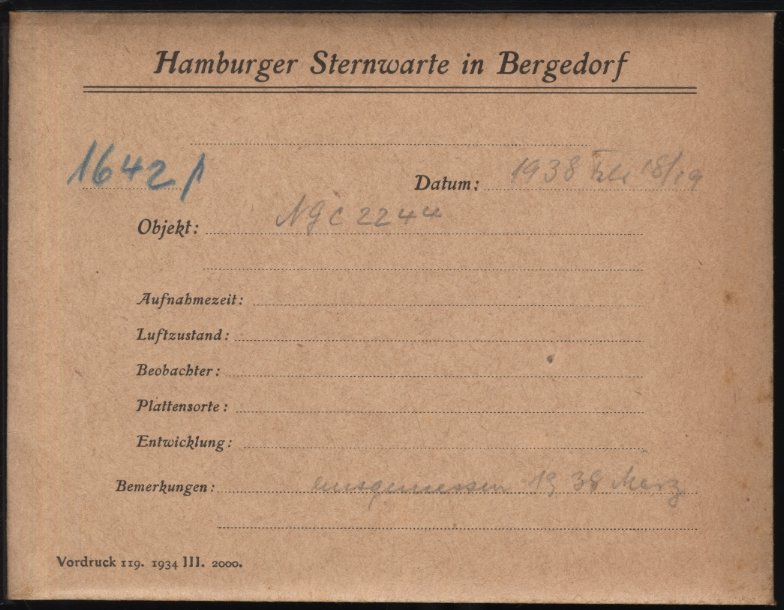 Hamburger Sternwarte in Bergedorf
1642/1
Datum: 1938 Feb 18/19
Objekt: NGC 2244
Aufnahmezeit:
Luftzustand:
Beobachter:
Plattensorte:
Entwicklung:
Bemerkungen: ausgemessen 1938 März
Vordruck 119. 1934 III. 2000.